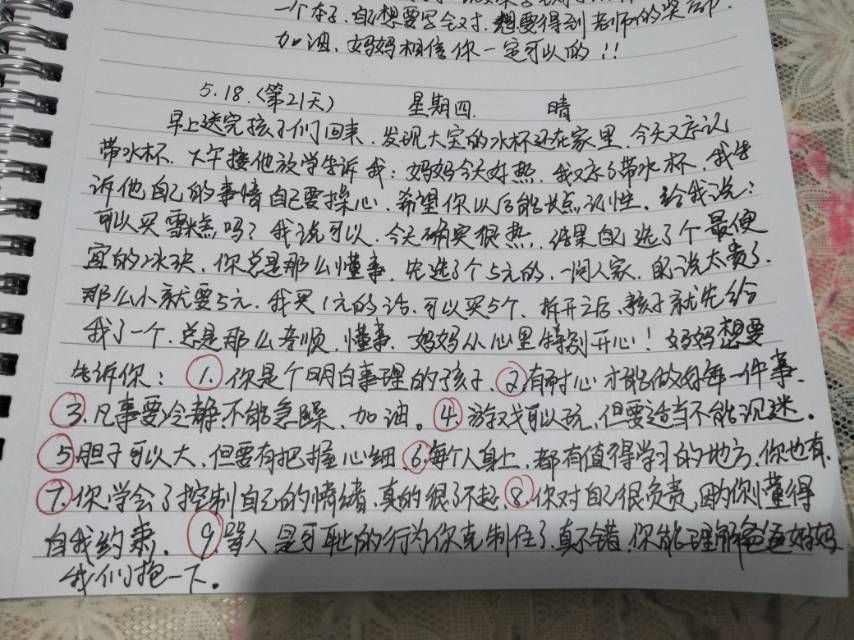 一个本子,自己想要写会对,想要得到老师的奖
加油,妈妈相信你一定可以的!!
5.18.(第21天) 星期四. 晴
早上送完孩子们回来,发现大宝的水杯还在家里,今天又忘记
带水杯.下午接他放学告诉我:妈妈今天好热,我又忘了带水杯,我告
诉他自己的事情自己要操心,希望你以后能长点记性.给我说:
可以买雪糕吗?我说可以,今天确实很热,结果自己选了个最便
宜的冰块,你总是那么懂事,先选了个5元的,一问人家,自己说太贵了,
那么小就要5元,我买1元的话,可以买5个,拆开之后,孩子就先给
我了一个,总是那么孝顺,懂事,妈妈从心里特别开心!妈妈想要
告诉你:①.你是个明白事理的孩子.②有耐心才能做好每一件事.
③.凡事要冷静,不能急躁,加油。④.游戏可以玩,但要适当不能沉迷。
⑤胆子可以大,但要有把握心细.⑥每个人身上,都有值得学习的地方,你也有.
⑦.你学会了控制自己的情绪,真的很了不起.⑧.你对自己很负责,因为你懂得
自我约束.⑨.骂人是可耻的行为你克制住了,真不错,你能理解爸爸妈妈
我们抱一下。